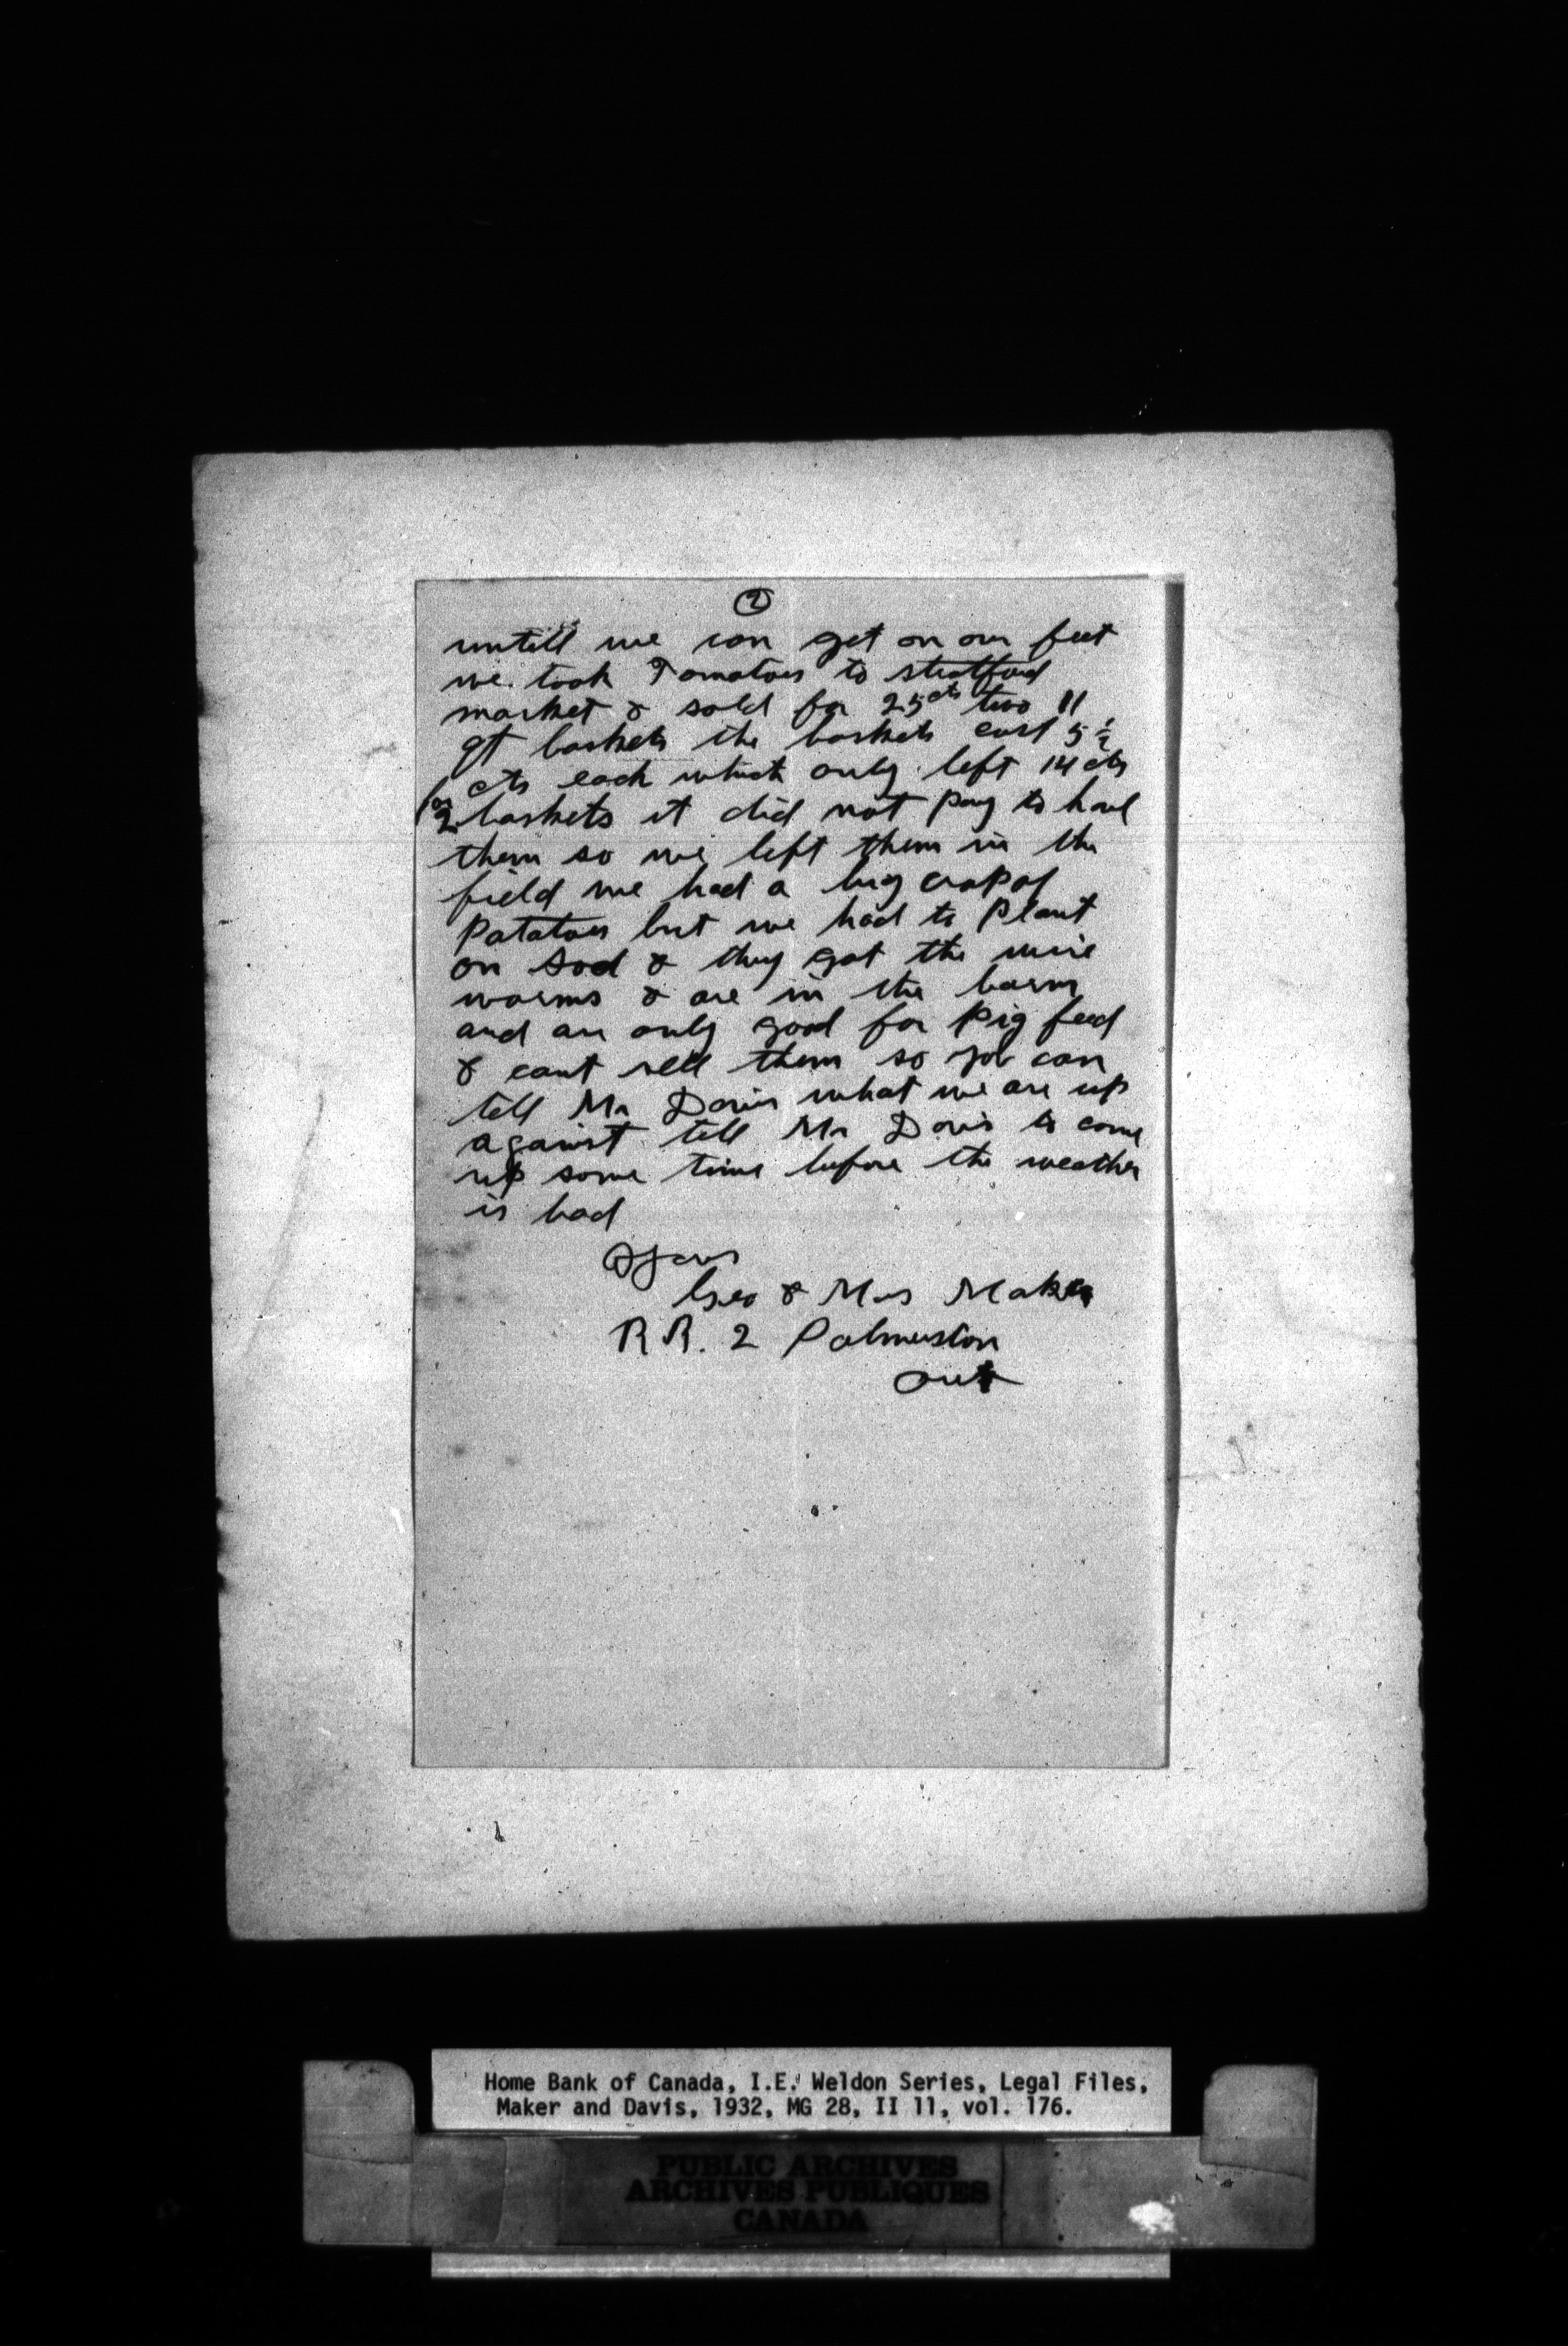 2
untill we can get on our feet
we took Tomatoes to stratford
market & sold for 25cts two 11
qt baskets the baskets cost 5½
cts each which only left 14 cts
for 2 baskets it did not pay to haul
them so we left them in the
field we had a big crop of
Patatoes but we had to Plant
on sod & they got the wire
worms & are in the barn
and are only good for Pig feed
& cant sell them so you can
tell Mr Davis what we are up
against tell Mr Davis to come
up some time before the weather
is bad
Yours
Geo & Mrs Maker
R R. 2 Palmerston
Ont
Home Bank of Canada, I.E. Weldon Series, Legal Files,
Maker and Davis, 1932, MG 28, II 11, vol. 176.
PUBLIC ARCHIVES
ARCHIVES PUBLIQUES
CANADA